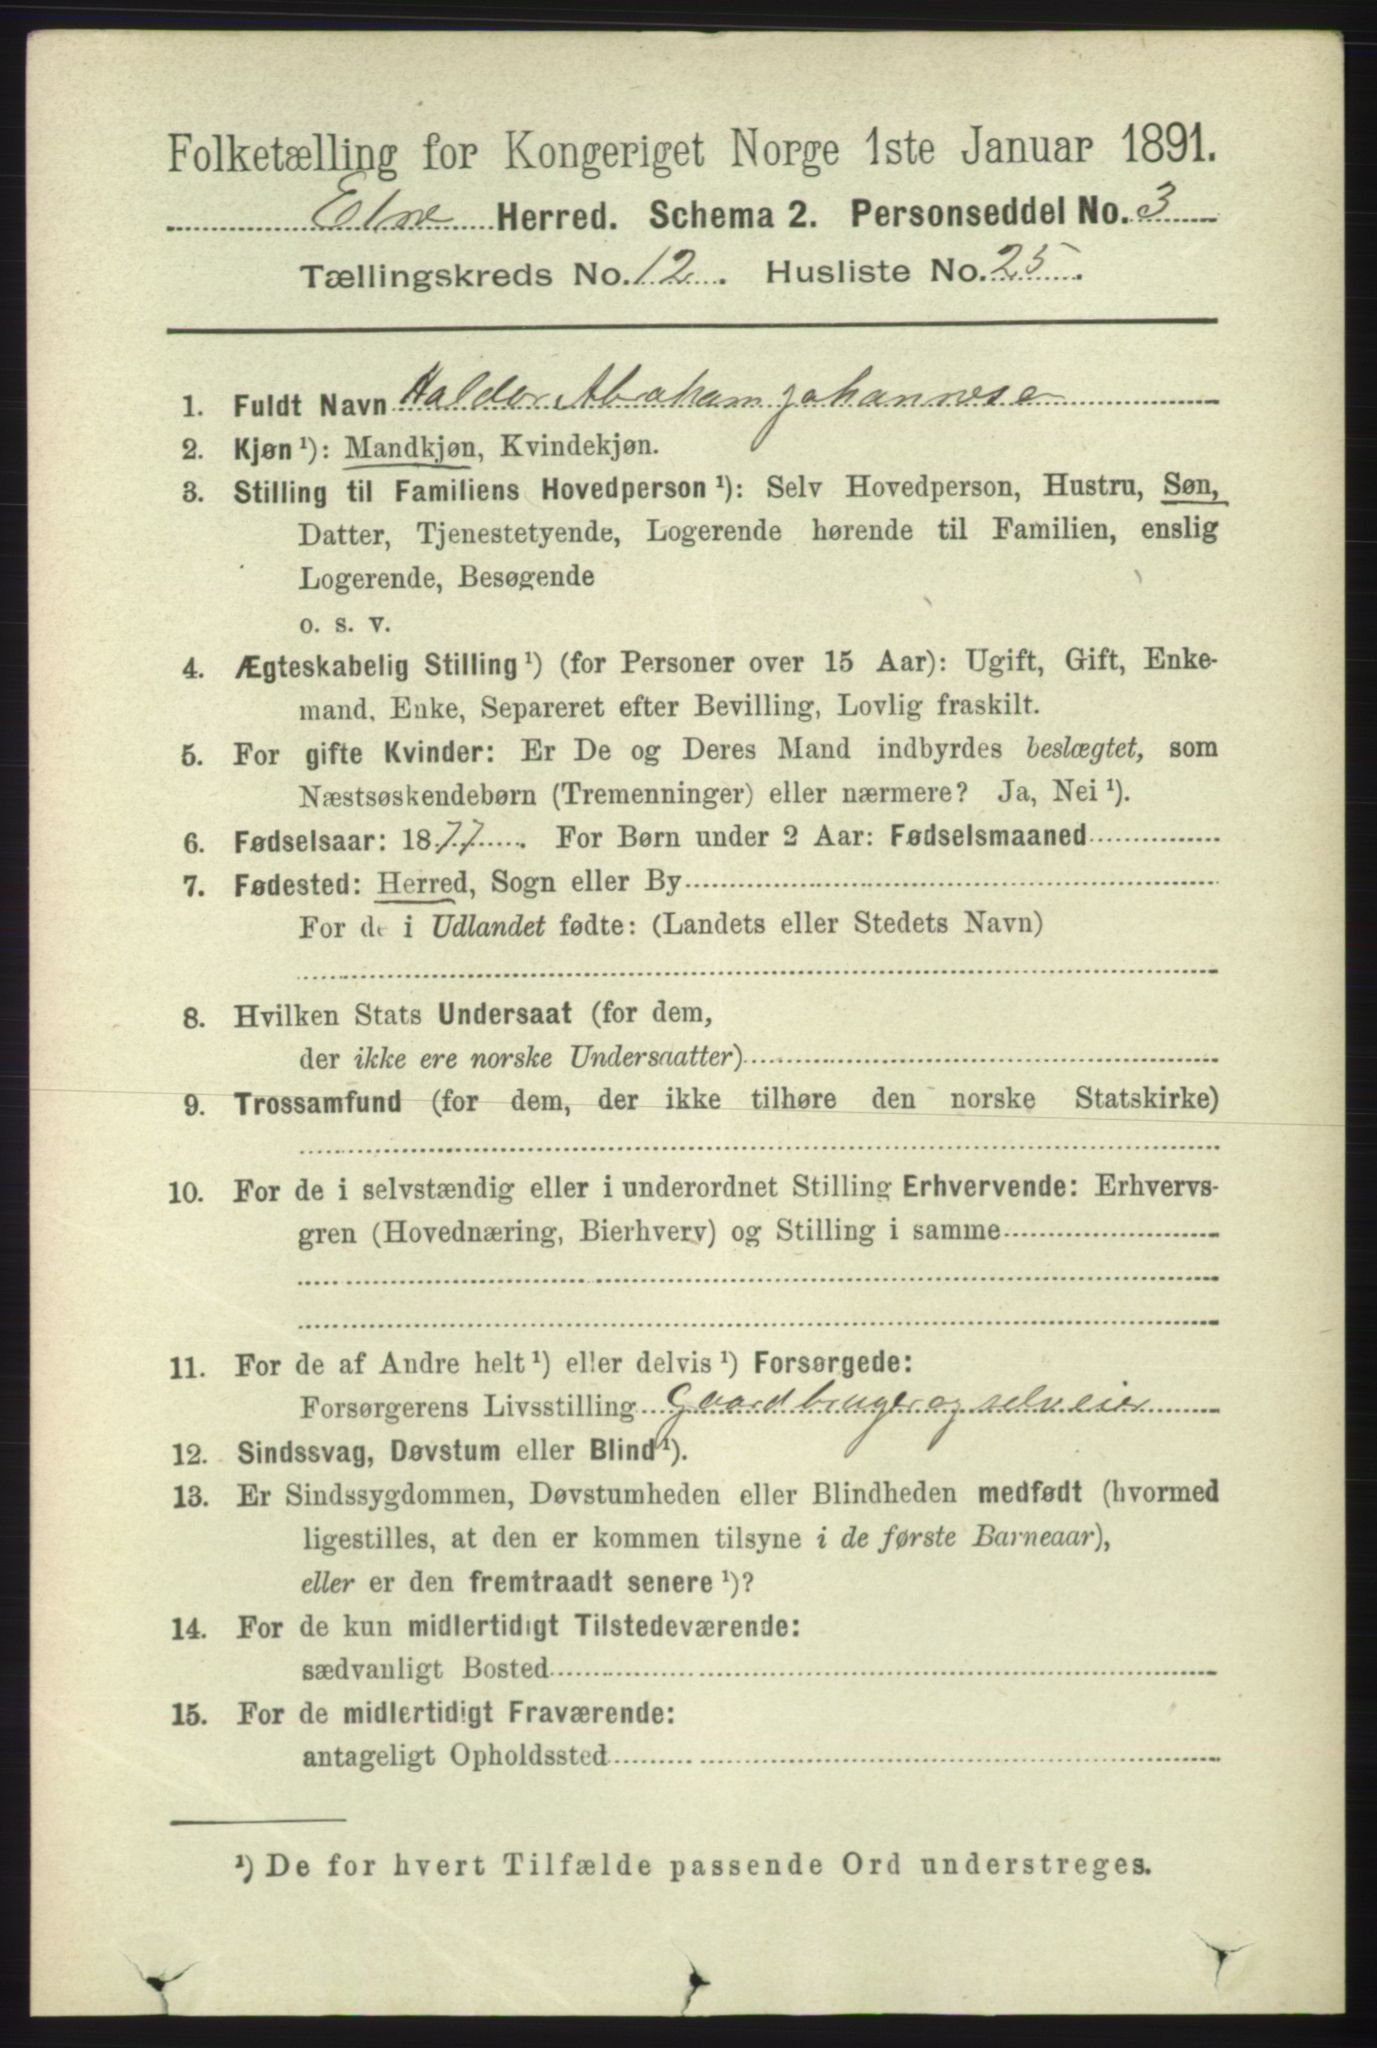 Folketælling for Kongeriget Norge 1ste Januar 1891.
Etne Herred. Schema 2. Personseddel No. 3
Tællingskreds No. 12. Husliste No. 25.
1. Fuldt Navn Haldor Abraham Johannesen
2. Kjøn ¹): Mandkjøn, Kvindekjøn.
3. Stilling til Familiens Hovedperson ¹): Selv Hovedperson, Hustru, Søn,
Datter, Tjenestetyende, Logerende hørende til Familien, enslig
Logerende, Besøgende
o. s. v.
4. Ægteskabelig Stilling ¹) (for Personer over 15 Aar): Ugift, Gift, Enke-
mand, Enke, Separeret efter Bevilling, Lovlig fraskilt.
5. For gifte Kvinder: Er De og Deres Mand indbyrdes beslægtet, som
Næstsøskendebørn (Tremenninger) eller nærmere? Ja, Nei ¹).
6. Fødselsaar: 1877. For Børn under 2 Aar: Fødselsmaaned
7. Fødested: Herred, Sogn eller By
For de i Udlandet fødte: (Landets eller Stedets Navn)
8. Hvilken Stats Undersaat (for dem,
der ikke ere norske Undersaatter)
9. Trossamfund (for dem, der ikke tilhøre den norske Statskirke)
10. For de i selvstændig eller i underordnet Stilling Erhvervende: Erhvervs-
gren (Hovednæring, Bierhverv) og Stilling i samme
11. For de af Andre helt ¹) eller delvis ¹) Forsørgede:
Forsørgerens Livsstilling Gaardbruger og selveier
12. Sindssvag, Døvstum eller Blind ¹).
13. Er Sindssygdommen, Døvstumheden eller Blindheden medfødt (hvormed
ligestilles, at den er kommen tilsyne i de første Barneaar),
eller er den fremtraadt senere ¹)?
14. For de kun midlertidigt Tilstedeværende:
sædvanligt Bosted
15. For de midlertidigt Fraværende:
antageligt Opholdssted
¹) De for hvert Tilfælde passende Ord understreges.